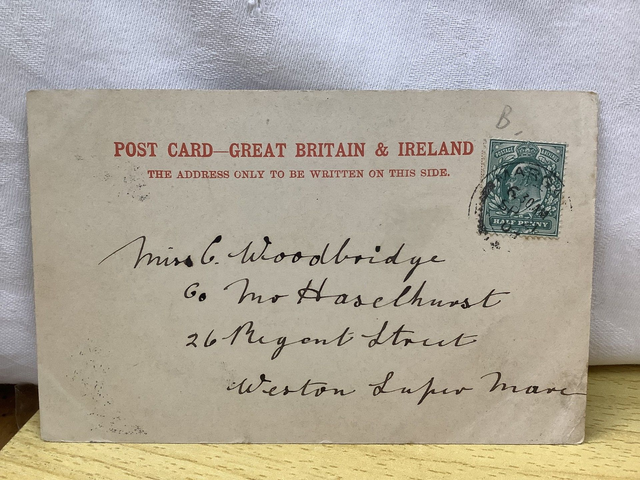 B.
POST CARD—GREAT BRITAIN & IRELAND
THE ADDRESS ONLY TO BE WRITTEN ON THIS SIDE.
POSTAGE
HALF PENNY
Miss C. Woodbridge
Co Mr Haselhurst
26 Regent Street
Weston Super Mare